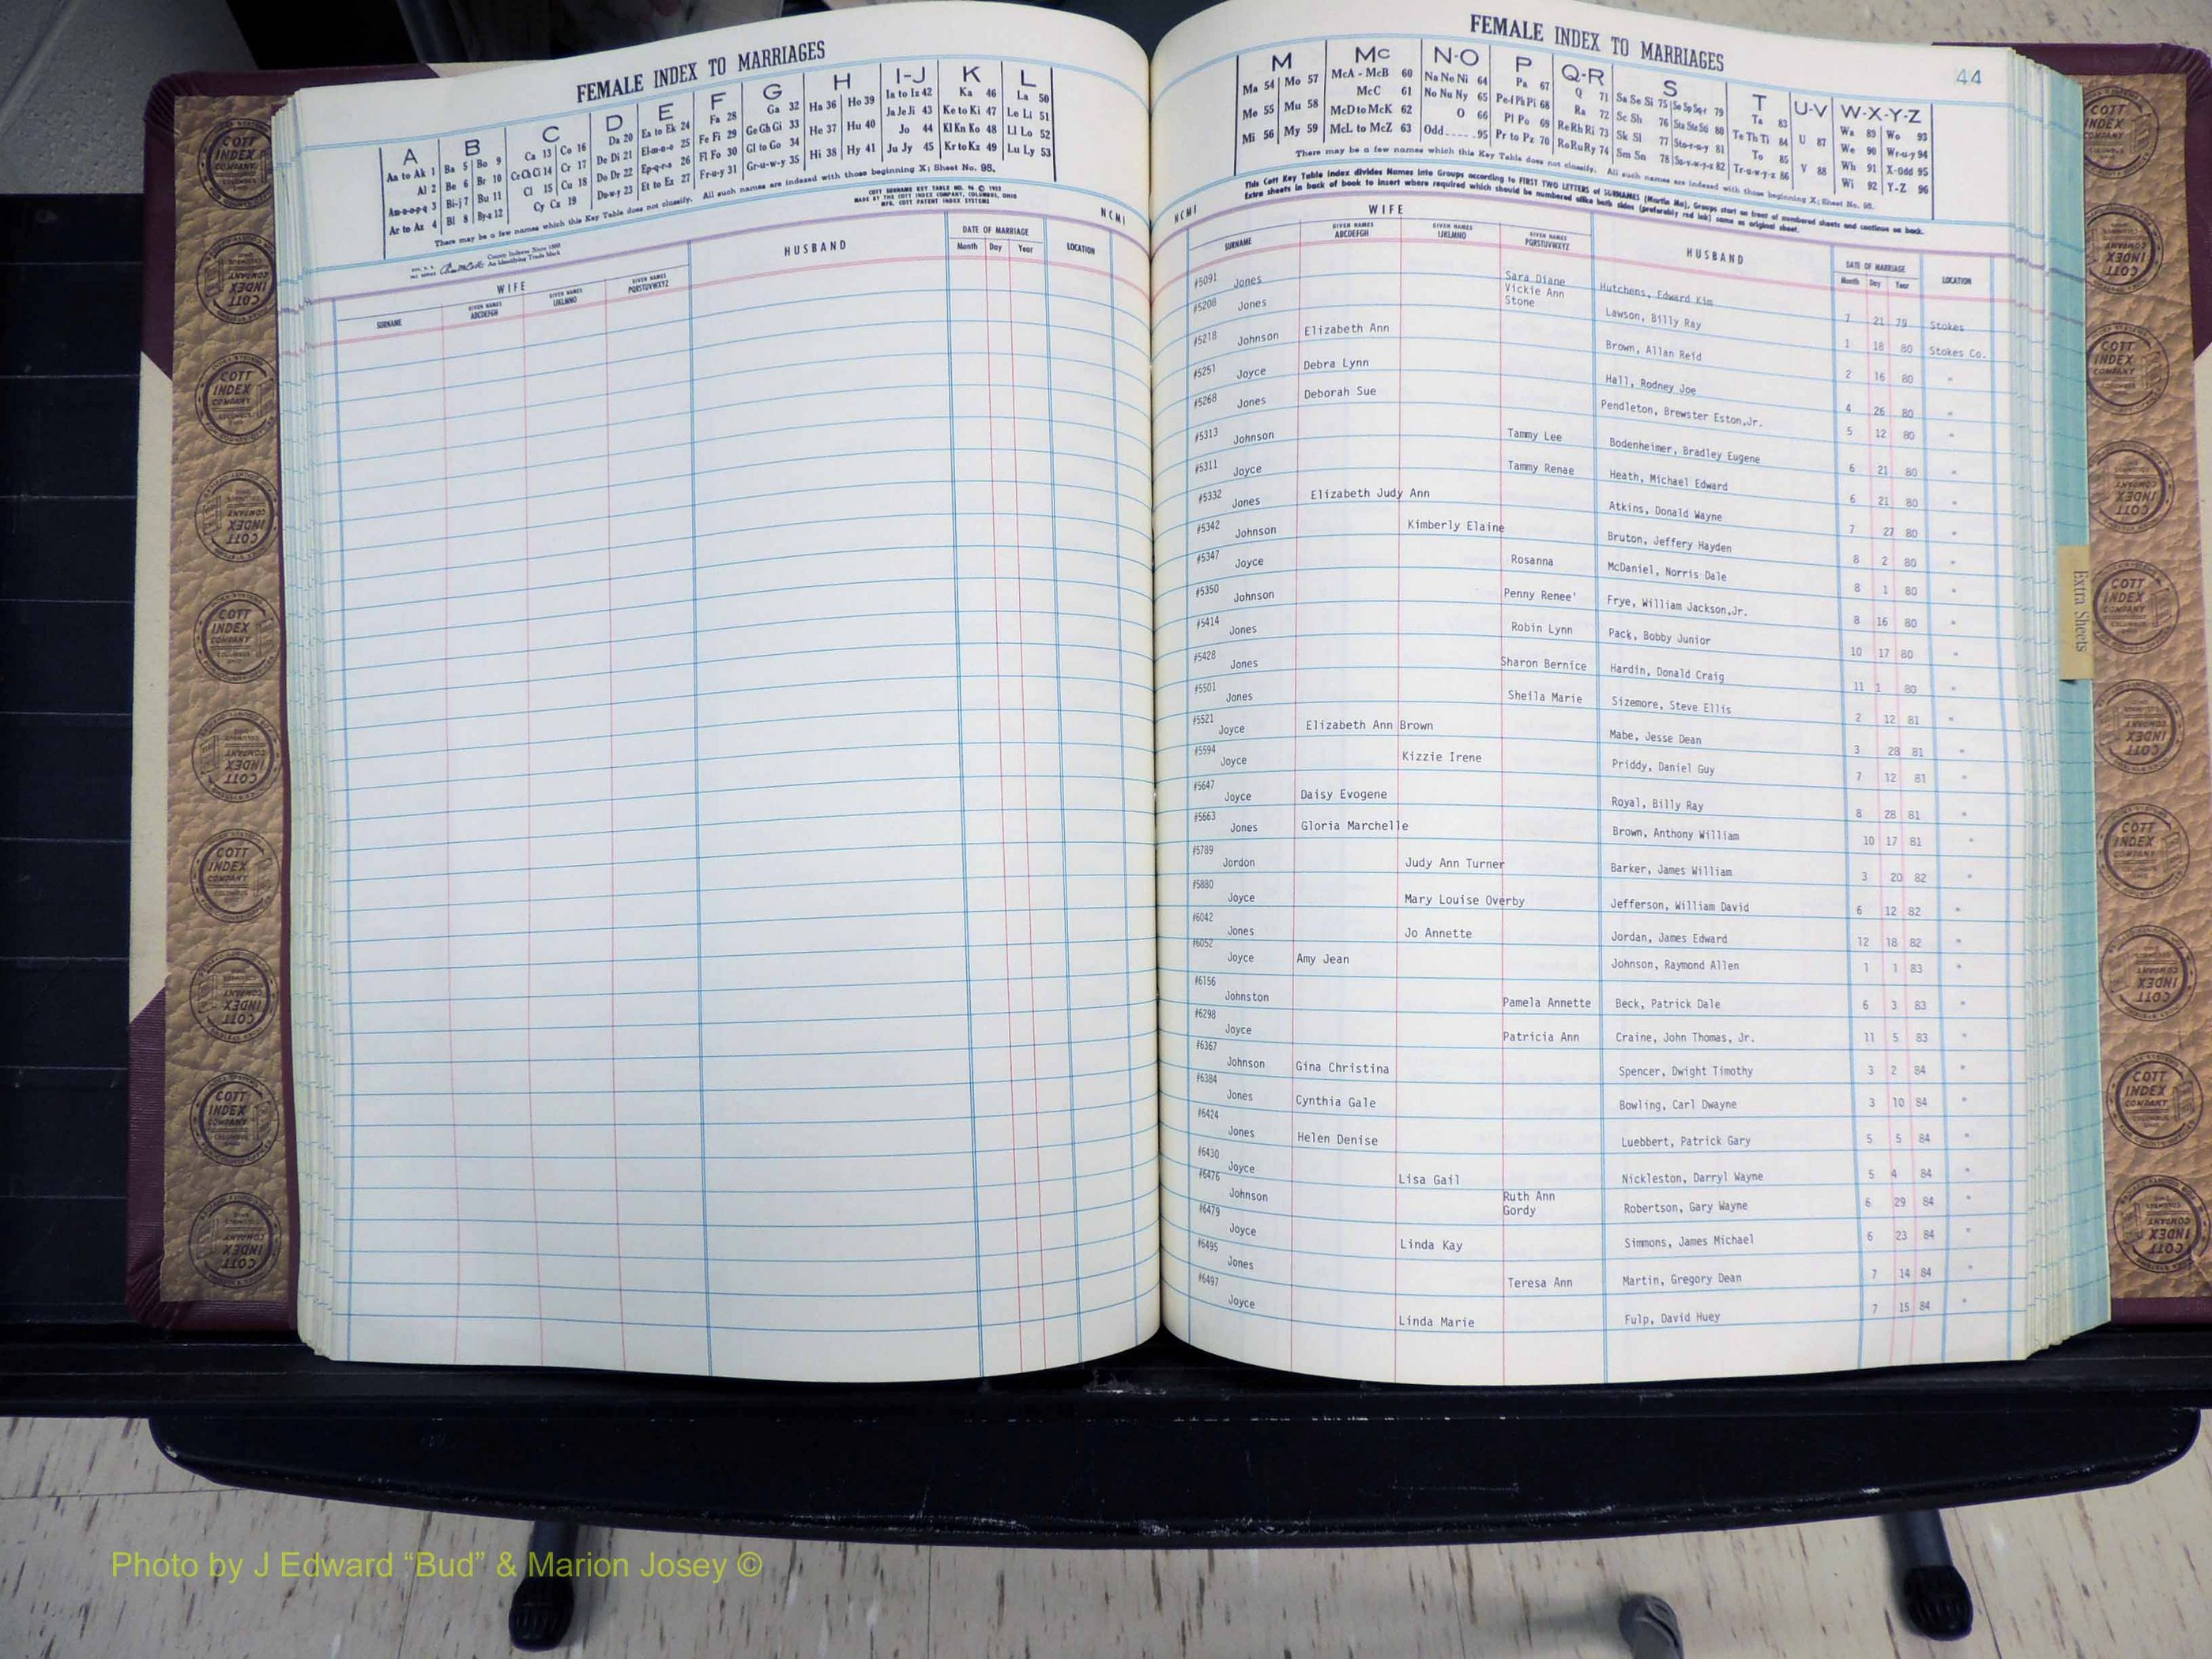 FEMALE INDEX TO MARRIAGES
A B C D E F G H I-J K L
Aa to Ak 1 Ba 5 Bo 9 Ca 13 Co 16 Da 20 Ea to Ek 24 Fa 28 Ga 32 Ha 36 Ho 39 Ia to Iz 42 Ka 46 La 50
Al 2 Be 6 Br 10 Ce Ch Ci 14 Cr 17 De Di 21 El-m-n-o 25 Fe Fi 29 Ge Gh Gi 33 He 37 Hu 40 Ja Je Ji 43 Ke to Ki 47 Le Li 51
Am-n-o-p-q 3 Bi-j 7 Bu 11 Cl 15 Cu 18 Do Dr 22 Ep-q-r-s 26 Fl Fo 30 Gl to Go 34 Hi 38 Hy 41 Jo 44 Kl Kn Ko 48 Ll Lo 52
Ar to Az 4 Bl 8 By-z 12 Cy Cz 19 Du-w-y 23 Et to Ez 27 Fr-u-y 31 Gr-u-w-y 35 Ju Jy 45 Kr to Kz 49 Lu Ly 53
There may be a few names which this Key Table does not classify. All such names are indexed with those beginning X; Sheet No. 95.
County Indexes Since 1888
An Identifying Trade Mark
COTT SURNAME KEY TABLE NO. 96 © 1952
MADE BY THE COTT INDEX COMPANY, COLUMBUS, OHIO
MFG. COTT PATENT INDEX SYSTEMS
NCMI
WIFE HUSBAND DATE OF MARRIAGE LOCATION
SURNAME GIVEN NAMES ABCDEFGH GIVEN NAMES IJKLMNO GIVEN NAMES PQRSTUVWXYZ Month Day Year
FEMALE INDEX TO MARRIAGES
44
M Mc N-O P Q-R S T U-V W-X-Y-Z
Ma 54 Mo 57 McA - McB 60 Na Ne Ni 64 Pa 67 Q 71 Sa Se Si 75 So Sp Sq-r 79 Ta 83 Wa 89 Wo 93
Me 55 Mu 58 McC 61 No Nu Ny 65 Pe-f Ph Pi 68 Ra 72 Sc Sh 76 Sta Ste Sti 80 Te Th Ti 84 U 87 We 90 Wr-u-y 94
Mi 56 My 59 McD to McK 62 O 66 Pl Po 69 Re Rh Ri 73 Sk Sl 77 Sto-r-u-y 81 To 85 Wh 91 X-Odd 95
McL to McZ 63 Odd 95 Pr to Pz 70 Ro Ru Ry 74 Sm Sn 78 Su-v-w-y-z 82 Tr-u-w-y-z 86 V 88 Wi 92 Y-Z 96
There may be a few names which this Key Table does not classify. All such names are indexed with those beginning X; Sheet No. 95.
This Cott Key Table Index divides Names into Groups according to FIRST TWO LETTERS of SURNAMES (Martin Ma), Groups start on front of numbered sheets and continue on back.
Extra sheets in back of book to insert where required which should be numbered alike both sides (preferably red ink) same as original sheet.
NCMI
WIFE HUSBAND DATE OF MARRIAGE LOCATION
SURNAME GIVEN NAMES ABCDEFGH GIVEN NAMES IJKLMNO GIVEN NAMES PQRSTUVWXYZ Month Day Year
#5091 Jones Sara Diane Hutchens, Edward Kim 7 21 79 Stokes
#5208 Jones Vickie Ann Stone Lawson, Billy Ray 1 18 80 Stokes Co.
#5218 Johnson Elizabeth Ann Brown, Allan Reid 2 16 80 "
#5251 Joyce Debra Lynn Hall, Rodney Joe 4 26 80 "
#5268 Jones Deborah Sue Pendleton, Brewster Eston,Jr. 5 12 80 "
#5313 Johnson Tammy Lee Bodenheimer, Bradley Eugene 6 21 80 "
#5311 Joyce Tammy Renae Heath, Michael Edward 6 21 80 "
#5332 Jones Elizabeth Judy Ann Atkins, Donald Wayne 7 27 80 "
#5342 Johnson Kimberly Elaine Bruton, Jeffery Hayden 8 2 80 "
#5347 Joyce Rosanna McDaniel, Norris Dale 8 1 80 "
#5350 Johnson Penny Renee' Frye, William Jackson,Jr. 8 16 80 "
#5414 Jones Robin Lynn Pack, Bobby Junior 10 17 80 "
#5428 Jones Sharon Bernice Hardin, Donald Craig 11 1 80 "
#5501 Jones Sheila Marie Sizemore, Steve Ellis 2 12 81 "
#5521 Joyce Elizabeth Ann Brown Mabe, Jesse Dean 3 28 81 "
#5594 Joyce Kizzie Irene Priddy, Daniel Guy 7 12 81 "
#5647 Joyce Daisy Evogene Royal, Billy Ray 8 28 81 "
#5663 Jones Gloria Marchelle Brown, Anthony William 10 17 81 "
#5789 Jordon Judy Ann Turner Barker, James William 3 20 82 "
#5880 Joyce Mary Louise Overby Jefferson, William David 6 12 82 "
#6042 Jones Jo Annette Jordan, James Edward 12 18 82 "
#6052 Joyce Amy Jean Johnson, Raymond Allen 1 1 83 "
#6156 Johnston Pamela Annette Beck, Patrick Dale 6 3 83 "
#6298 Joyce Patricia Ann Craine, John Thomas, Jr. 11 5 83 "
#6367 Johnson Gina Christina Spencer, Dwight Timothy 3 2 84 "
#6384 Jones Cynthia Gale Bowling, Carl Dwayne 3 10 84 "
#6424 Jones Helen Denise Luebbert, Patrick Gary 5 5 84 "
#6430 Joyce Lisa Gail Nickleston, Darryl Wayne 5 4 84 "
#6476 Johnson Ruth Ann Gordy Robertson, Gary Wayne 6 29 84 "
#6479 Joyce Linda Kay Simmons, James Michael 6 23 84 "
#6495 Jones Teresa Ann Martin, Gregory Dean 7 14 84 "
#6497 Joyce Linda Marie Fulp, David Huey 7 15 84 "
Extra Sheets
COTT INDEX COMPANY COLUMBUS OHIO
Photo by J Edward “Bud” & Marion Josey ©